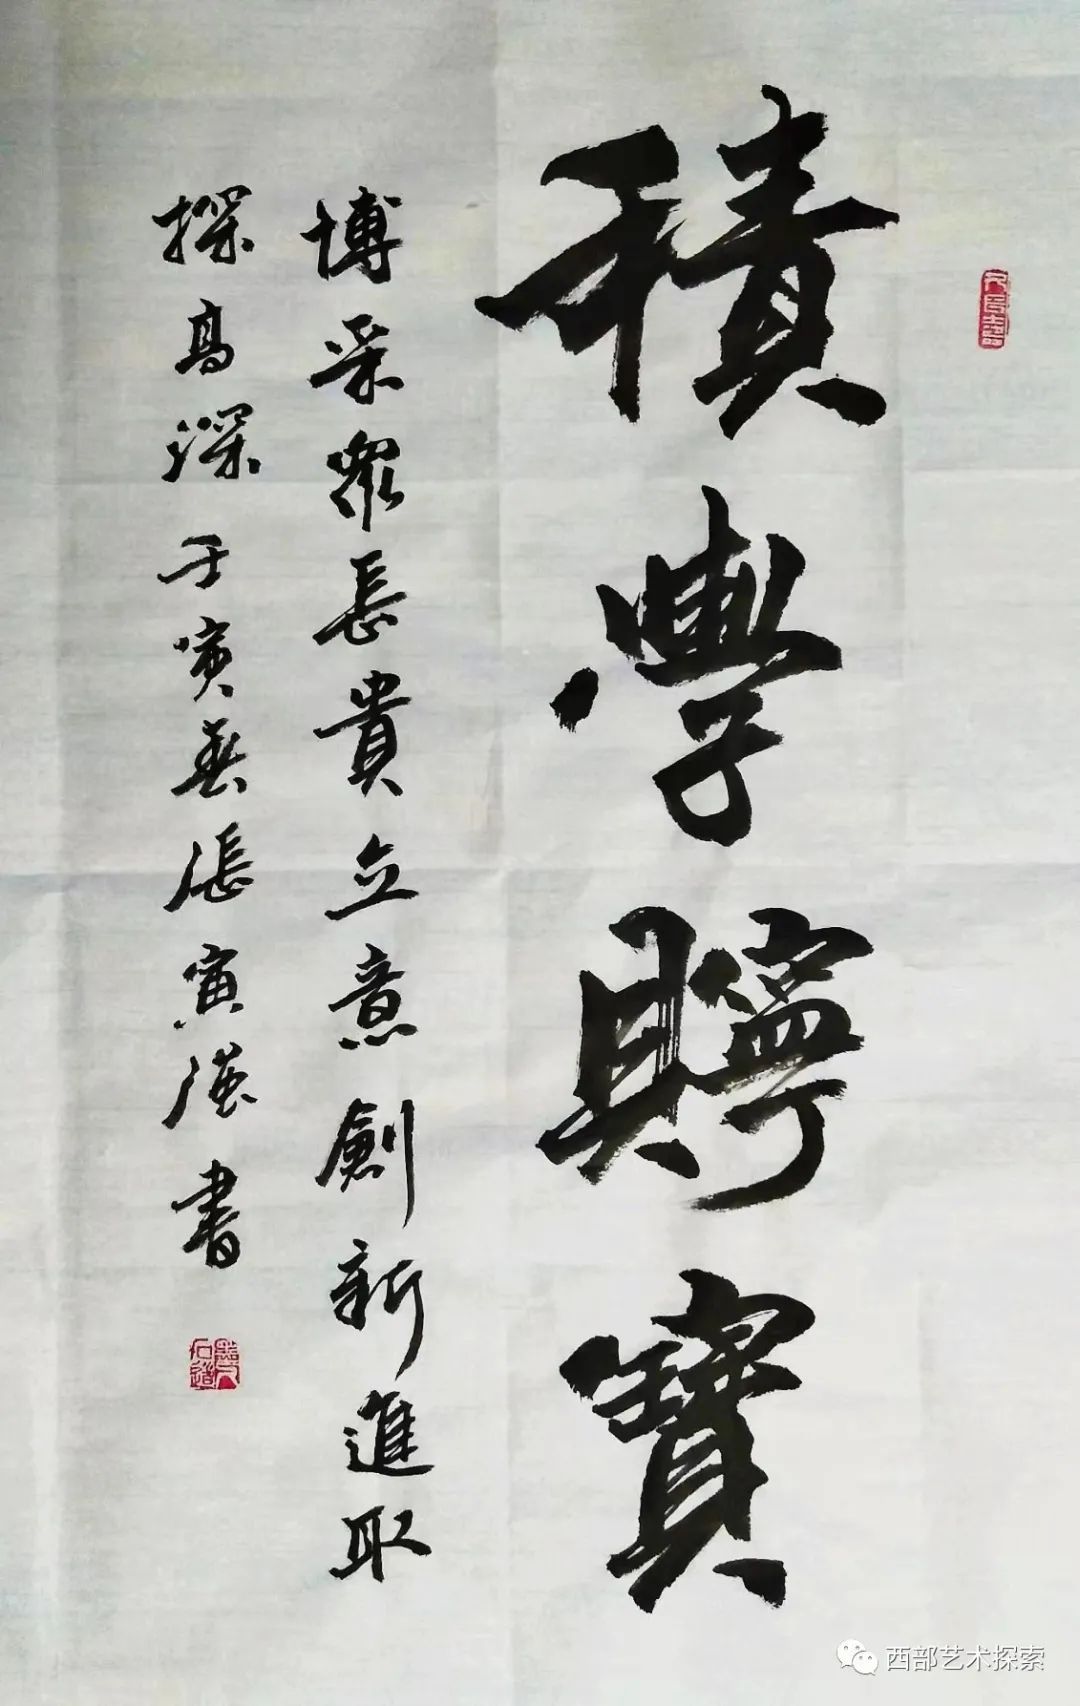 積學䝼寶
博采眾長貴立意創新進取
探高深壬寅春張寅強書
西部艺术探索